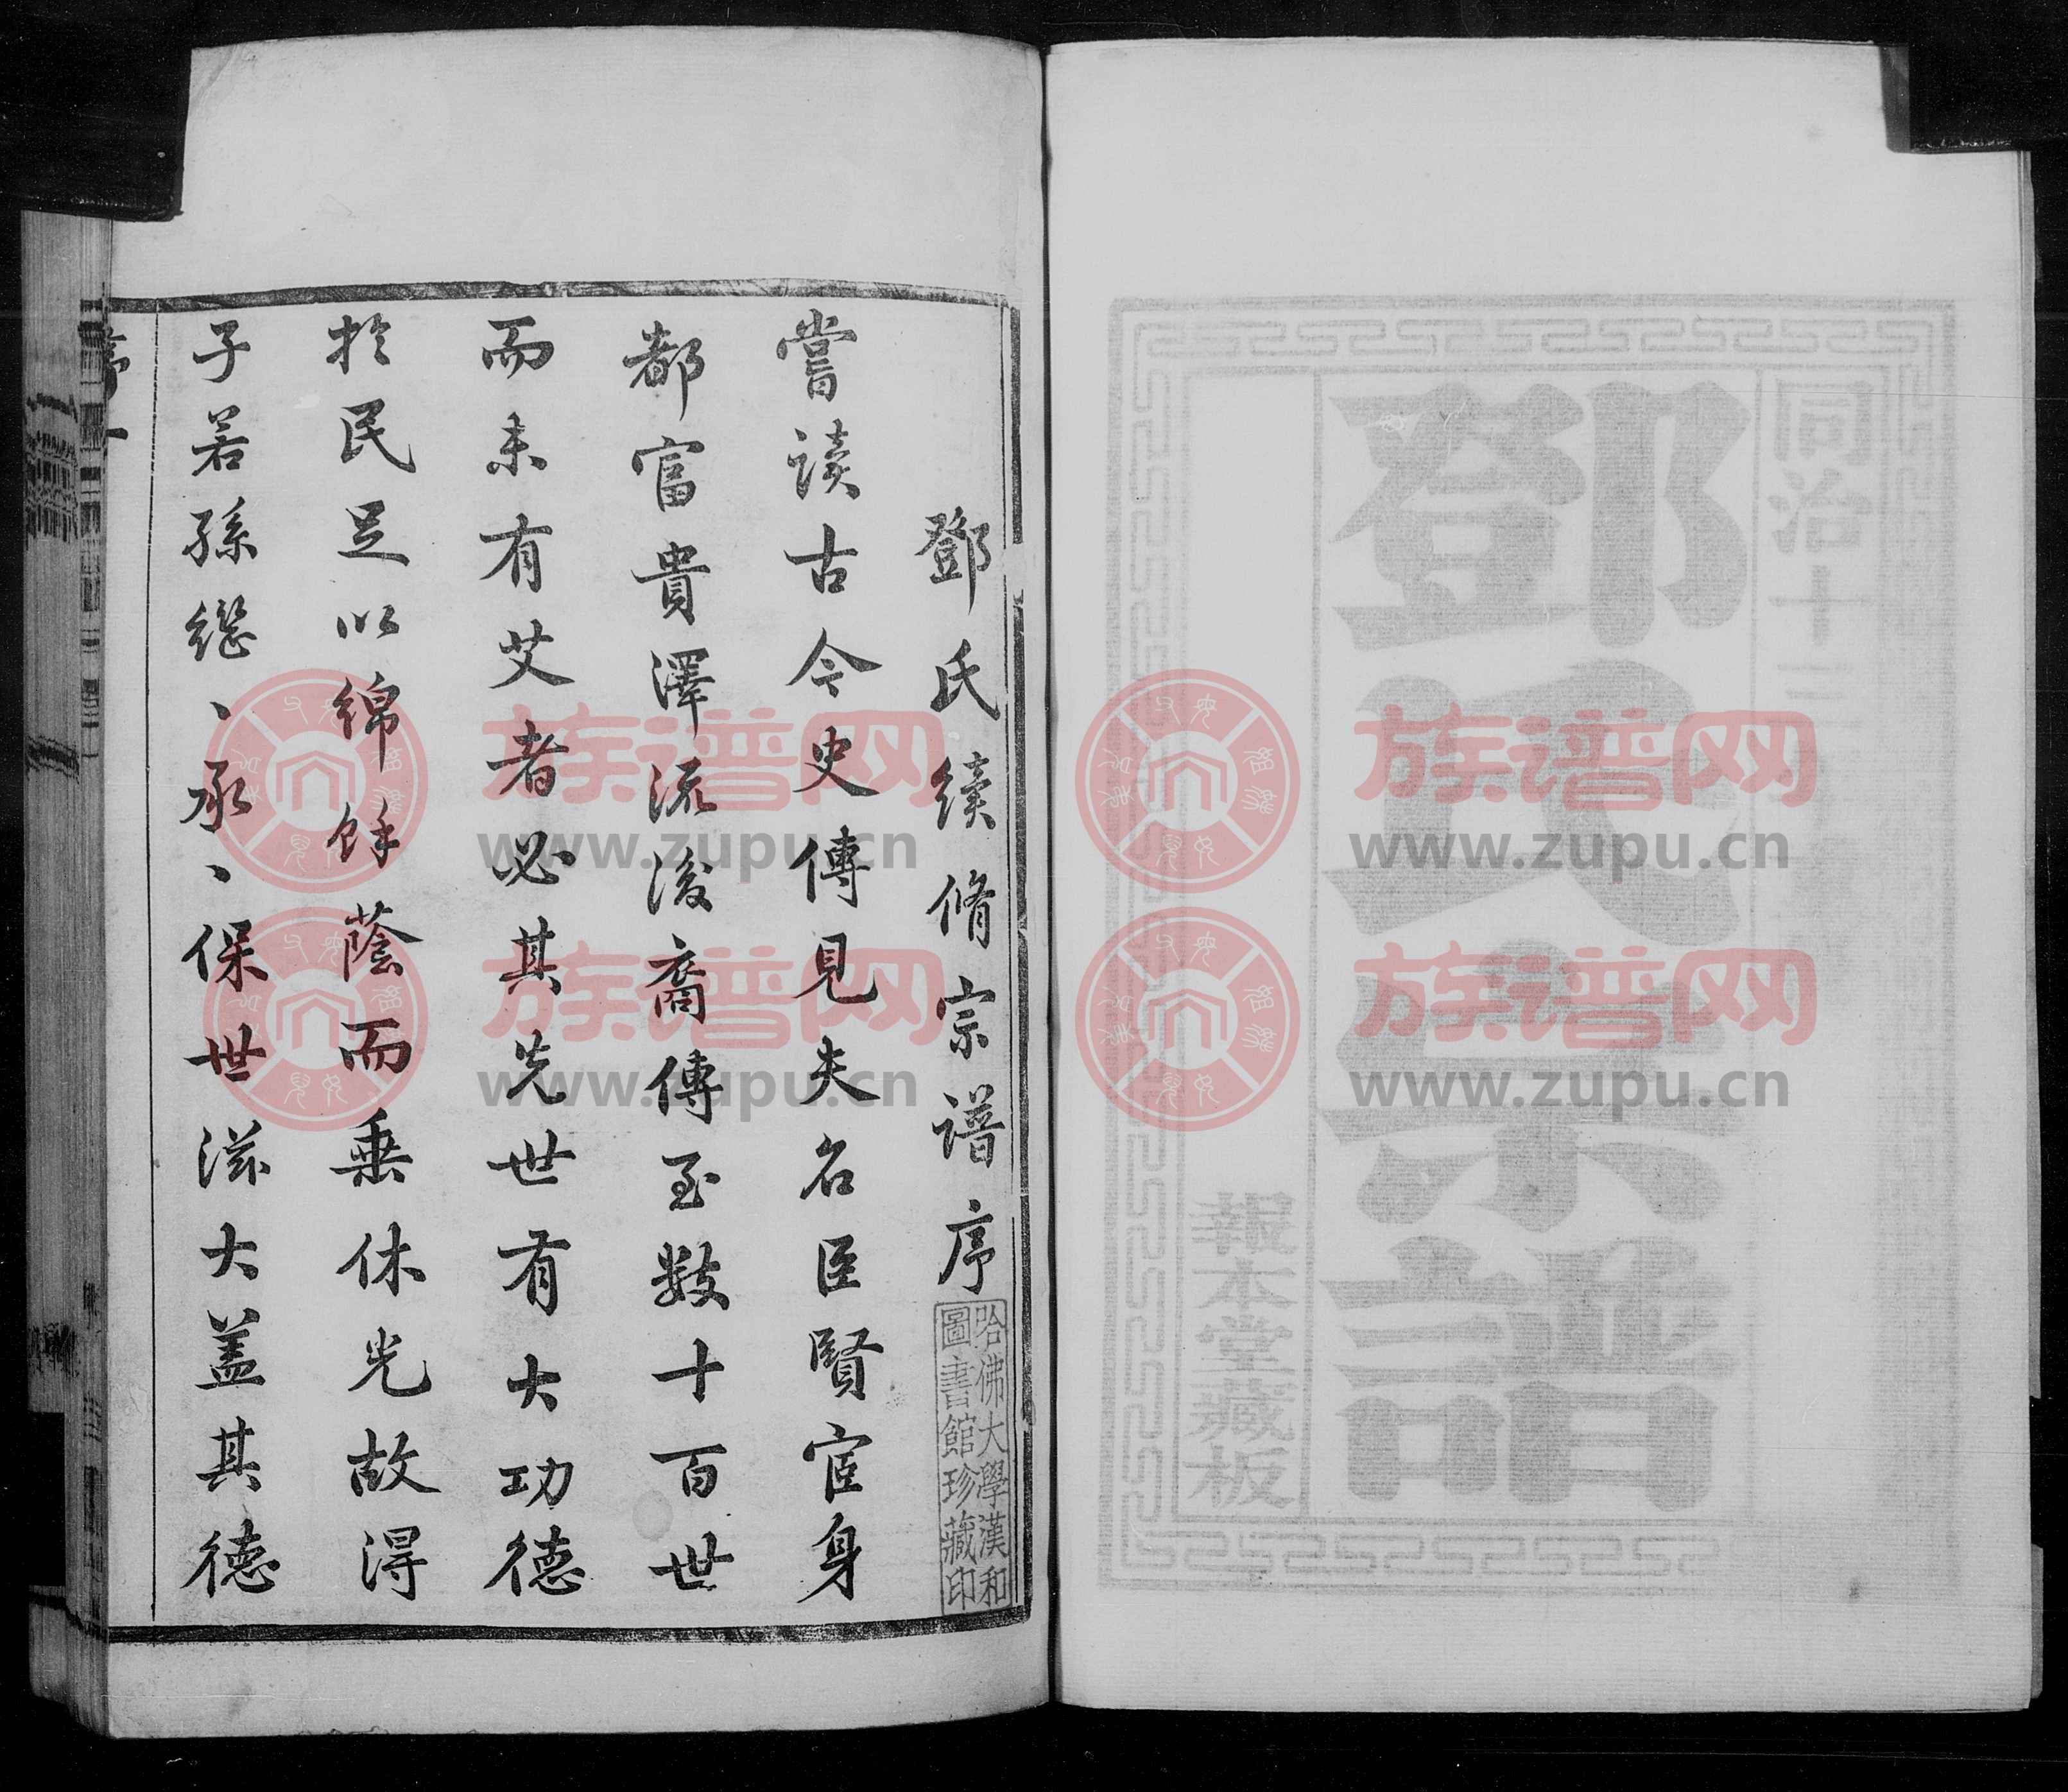 同治十
鄧氏宗譜
報本堂藏板
鄧氏續脩宗譜序
哈佛大學漢和
圖書館珍藏印
嘗读古今史傳見夫名臣賢宦身
都富貴澤流後裔傳至数十百世
而未有艾者必其先世有大功德
扵民足以綿馀蔭而垂休光故得
子若孫繼、承、保世滋大蓋其德
序
一
族谱网
www.zupu.cn
族谱网
www.zupu.cn
族谱网
www.zupu.cn
族谱网
www.zupu.cn